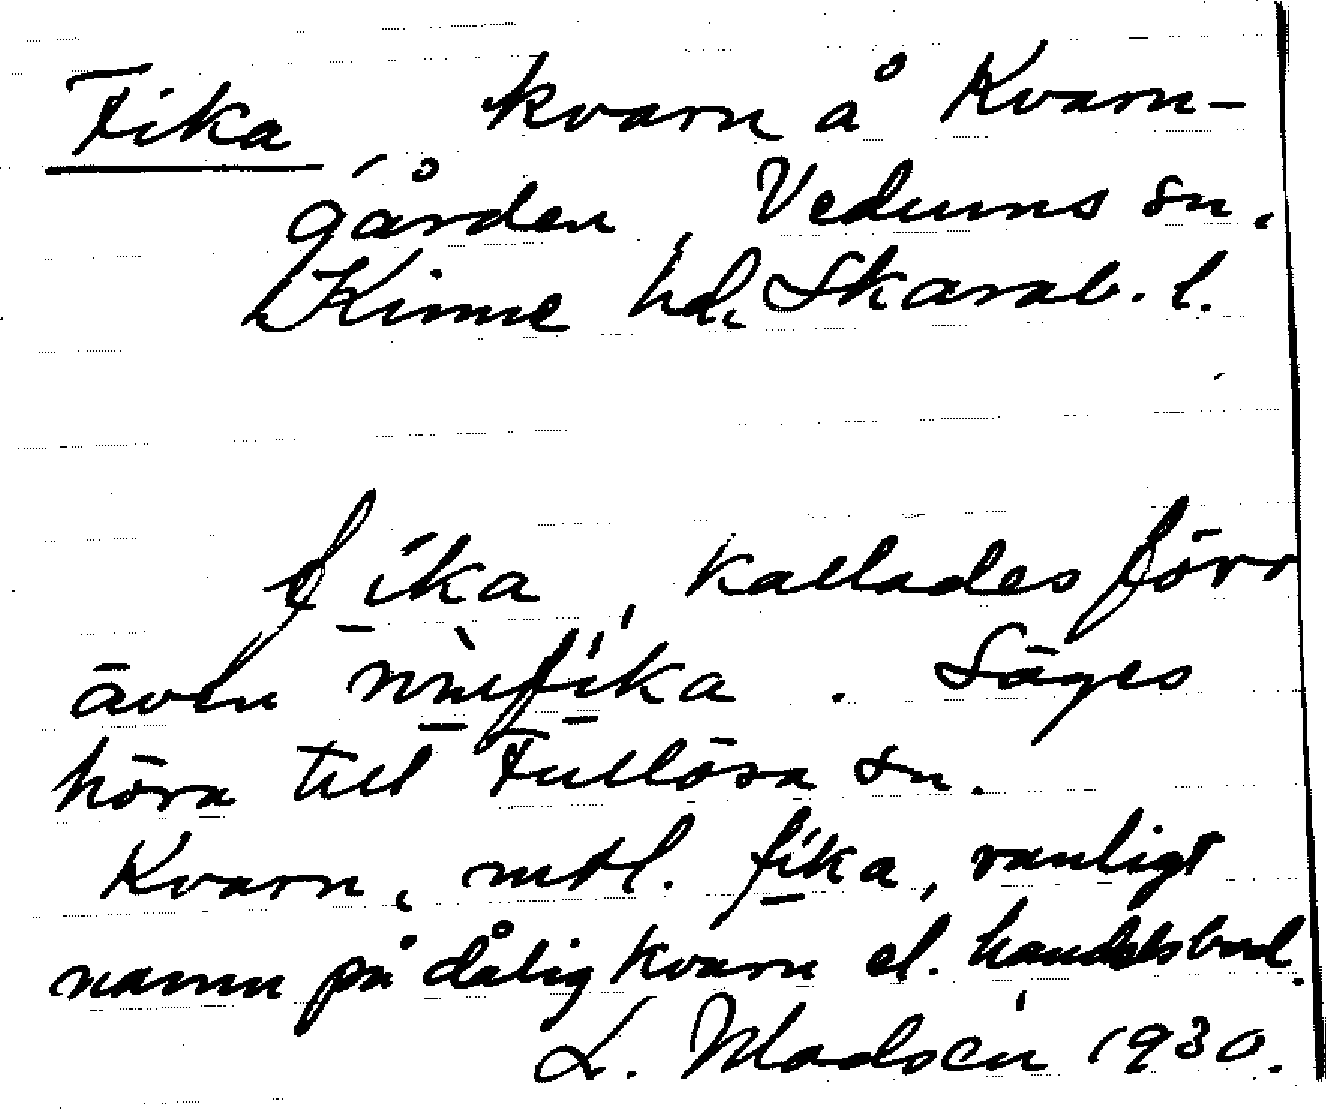 Fika kvarn å Kvarn-
gården, Vedums sn.
Kinne hd, Skarab. l.
fika, kallades förr
även nmefika. Säges
höra till Fullösa sn.
Kvarn, mtl. fika, vanligt
namn på dålig kvarn el. handelsbod.
L. Madsén 1930.